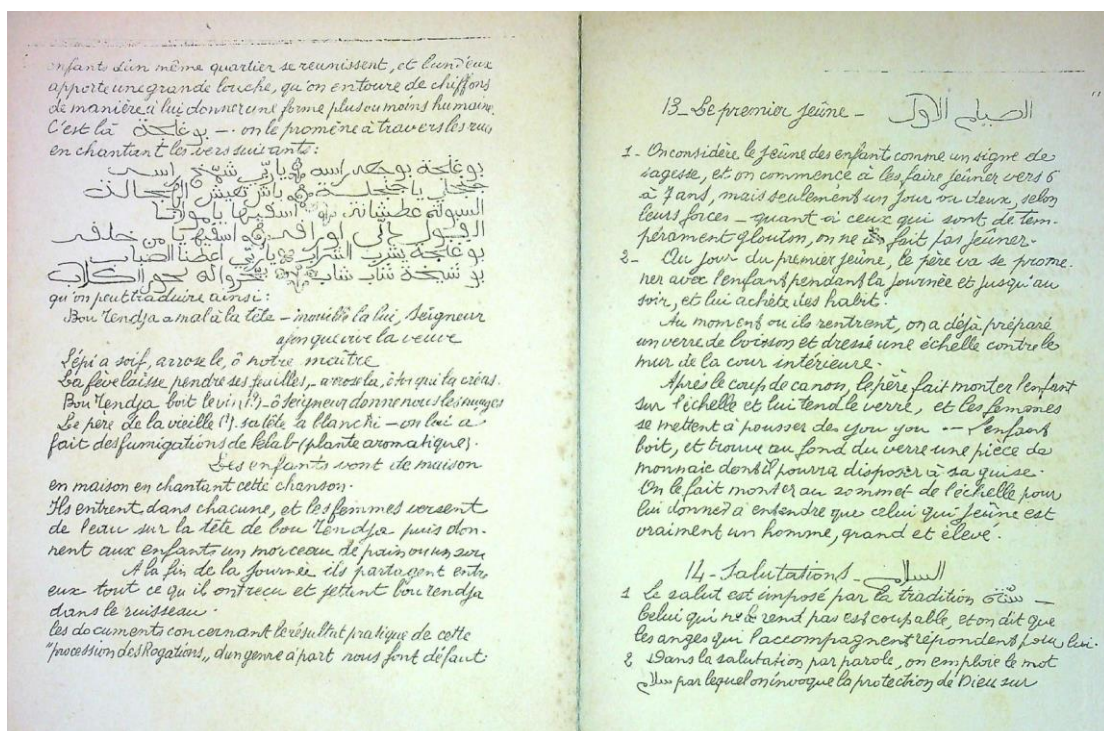 enfants d'un même quartier se réunissent, et l'un d'eux
apporte une grande louche, qu'on entoure de chiffons
de manière à lui donner une forme plus ou moins humaine.
C'est là بوغنجة — on le promène à travers les rues
en chantant les vers suivants:
بوغنجة يوجعه راسه يا ربي
يا
السبولة عطشانة اسقيها يا مولانا
الفول اسقيها يا من خلقه
بوغنجة يشرب الشراب يا ربي اعطنا الضباب
بو شيخة شاب شاب
qu'on peut traduire ainsi:
Bou Tendja a mal à la tête — la lui, Seigneur
afin que vive la veuve
L'épi a soif, arrose le, ô notre maître
La fève laisse pendre ses feuilles, — arrose la, ô toi qui la créas.
Bou Tendja boit le vin (?) — ô Seigneur donne nous les nuages
Le père de la vieille (?) sa tête a blanchi — on lui a
fait des fumigations de Kelab — (plante aromatique).
Les enfants vont de maison
en maison en chantant cette chanson.
Ils entrent dans chacune, et les femmes versent
de l'eau sur la tête de bou Tendja puis don-
nent aux enfants un morceau de pain ou un sou
A la fin de la journée ils partagent entre
eux tout ce qu'il ont reçu et jettent bou tendja
dans le ruisseau.
les documents concernant le résultat pratique de cette
"procession des Rogations,, d'un genre à part nous font défaut.
13 - Le premier jeûne - الصيام الأول
1 - On considère le jeûne des enfant comme un signe de
sagesse, et on commence à les faire jeûner vers 6
à 7 ans, mais seulement un jour ou deux, selon
leurs forces — quant à ceux qui sont de tem-
pérament glouton, on ne fait pas jeûner.
2 - Au jour du premier jeûne, le père va se prome-
ner avec l'enfant pendant la journée et jusqu'au
soir, et lui achète des habit.
Au moment ou ils rentrent, on a déjà préparé
un verre de boisson et dressé une échelle contre le
mur de la cour intérieure.
Après le coup de canon, le père fait monter l'enfant
sur l'échelle et lui tend le verre, et les femmes
se mettent à pousser des you you — L'enfant
boit, et trouve au fond du verre une pièce de
monnaie dont il pourra disposer à sa guise.
On le fait monter au sommet de l'échelle pour
lui donner à entendre que celui qui jeûne est
vraiment un homme, grand et élevé.
14 - Salutations - السلام
1 Le salut est imposé par la tradition سنة —
Celui qui ne le rend pas est coupable, et on dit que
les anges qui l'accompagnent répondent pour lui.
2 Dans la salutation par parole, on emploie le mot
سلام par lequel on invoque la protection de Dieu sur